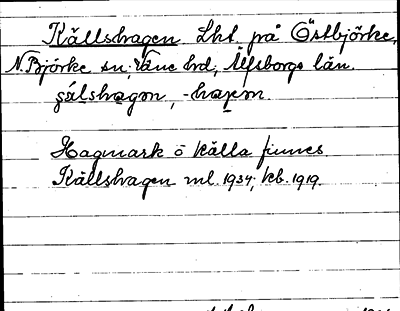 Källshagen Lht på Östbjörke,
N. Björke sn, Väne hd, Älfsborgs län.
sálshagon, -haʒen.
Hagmark o källa finnes.
Källshagen ml. 1934; kb. 1919.